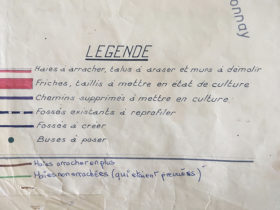 onnay
LEGENDE
Haies à arracher, talus à araser et murs à démolir
Friches, taillis à mettre en état de culture
Chemins supprimés à mettre en culture
Fossés existants à reprofiler
Fossés à créer
Buses à poser
Haies arrachées en plus
Haies non arrachées (qui étaient prévues)